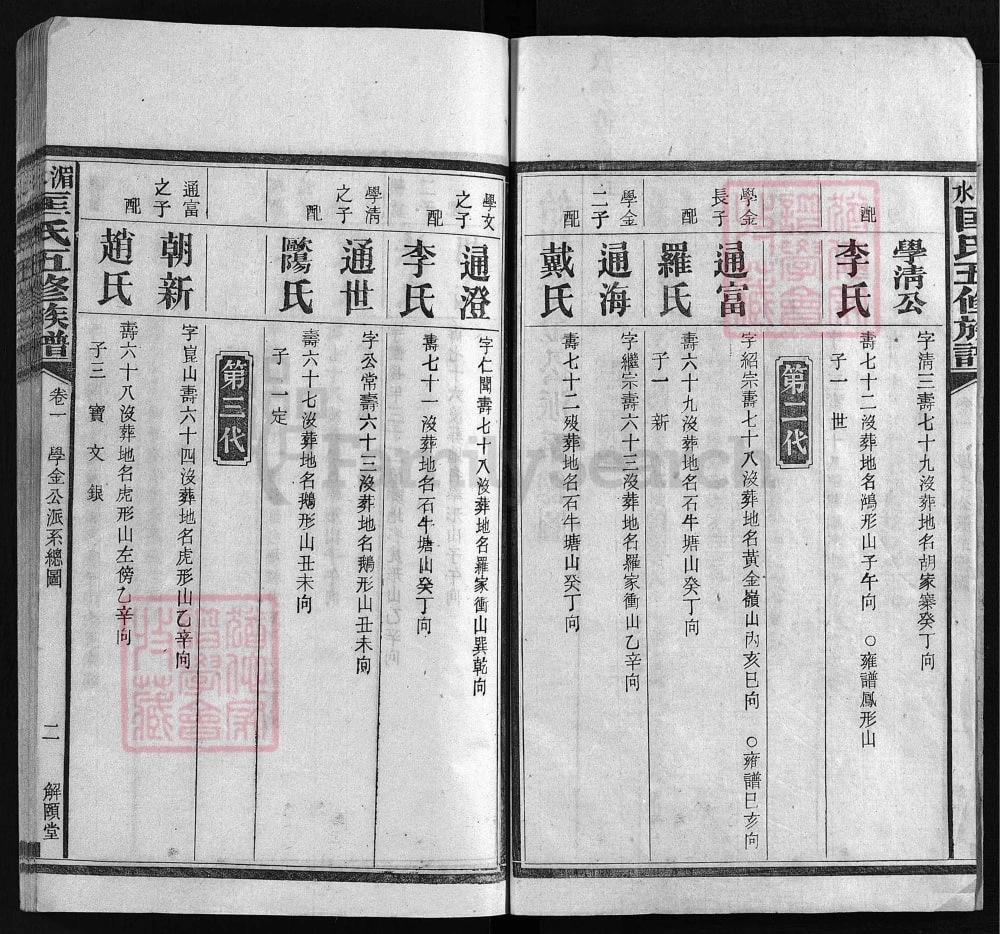 水匡氏五修族譜
學清公
字清三壽七十九沒葬地名胡家寨癸丁向
配
李氏
壽七十二沒葬地名鴻形山子午向 ○雍譜鳳形山
子一 世
第二代
學金長子
通富
字紹宗壽七十八沒葬地名黃金嶺山丙亥巳向 ○雍譜巳亥向
配
羅氏
壽六十九沒葬地名石牛塘山癸丁向
子一 新
學金二子
通海
字繼宗壽六十三沒葬地名羅家衝山乙辛向
配
戴氏
壽七十二歿葬地名石牛塘山癸丁向
學文之子
通澄
字仁聞壽七十八沒葬地名羅家衝山巽乾向
配
李氏
壽七十一沒葬地名石牛塘山癸丁向
學清之子
通世
字公常壽六十三沒葬地名鵝形山丑未向
配
歐陽氏
壽六十七沒葬地名鵝形山丑未向
子一 定
第三代
通富之子
朝新
字崑山壽六十四沒葬地名虎形山乙辛向
配
趙氏
壽六十八沒葬地名虎形山左傍乙辛向
子三 寶 文 銀
湄匡氏五修族譜 卷一 學金公派系總圖 二 解頤堂
FamilySearch